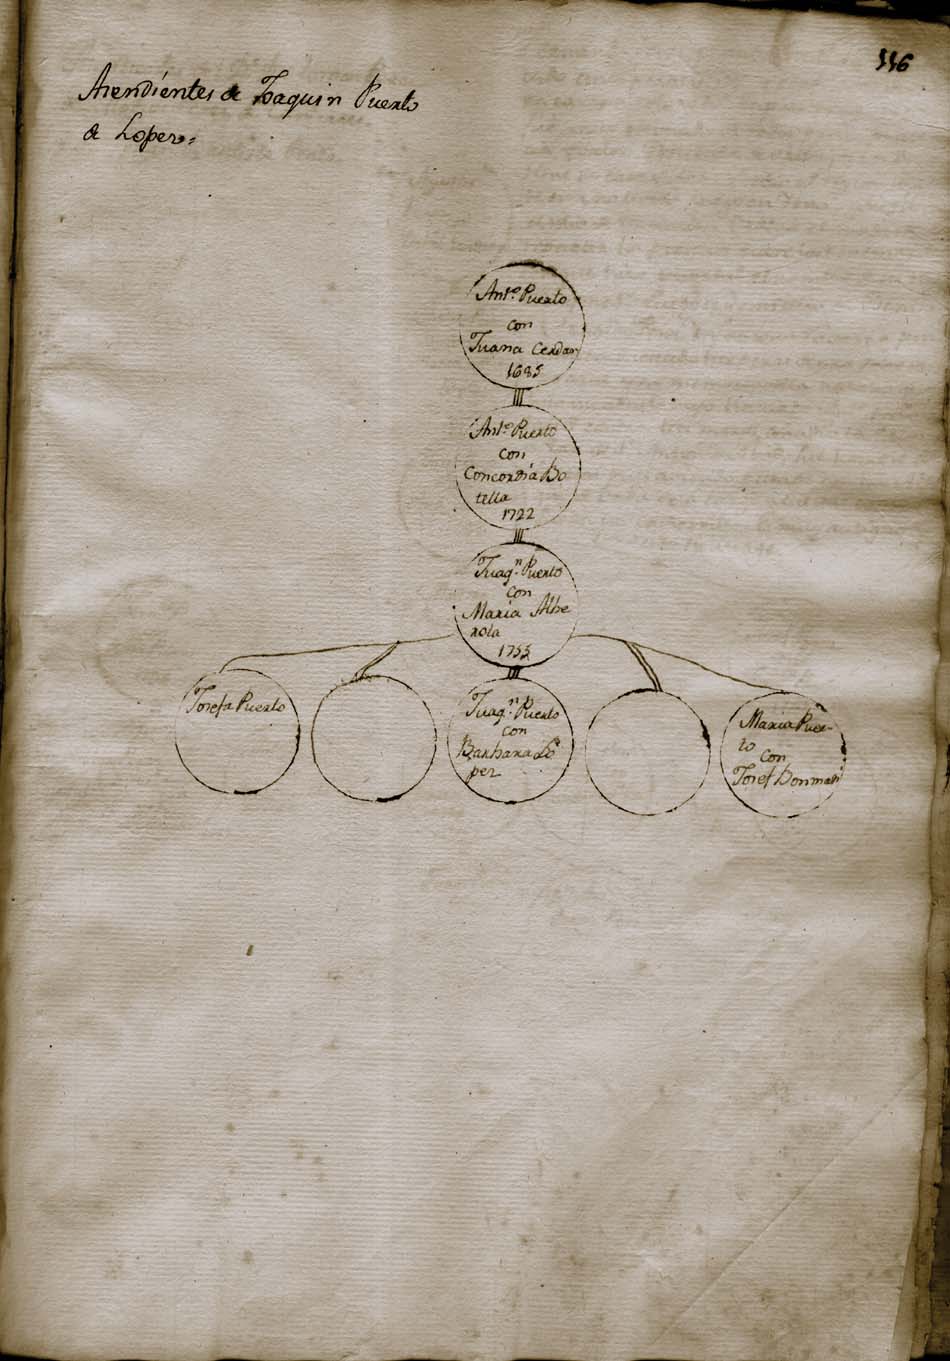 116
Asendientes de Joaquin Puerto
de Loper=
Antº Puerto
con
Juana Cerdan
1685
Antº Puerto
con
Concordia Bo
tella
1722
Juaqⁿ Puerto
con
Maria Albe
rola
1755
Josefa Puerto
Juaqⁿ Puerto
con
Barbara Lo
per
Maria Puer-
to
con
Josef Bonmati